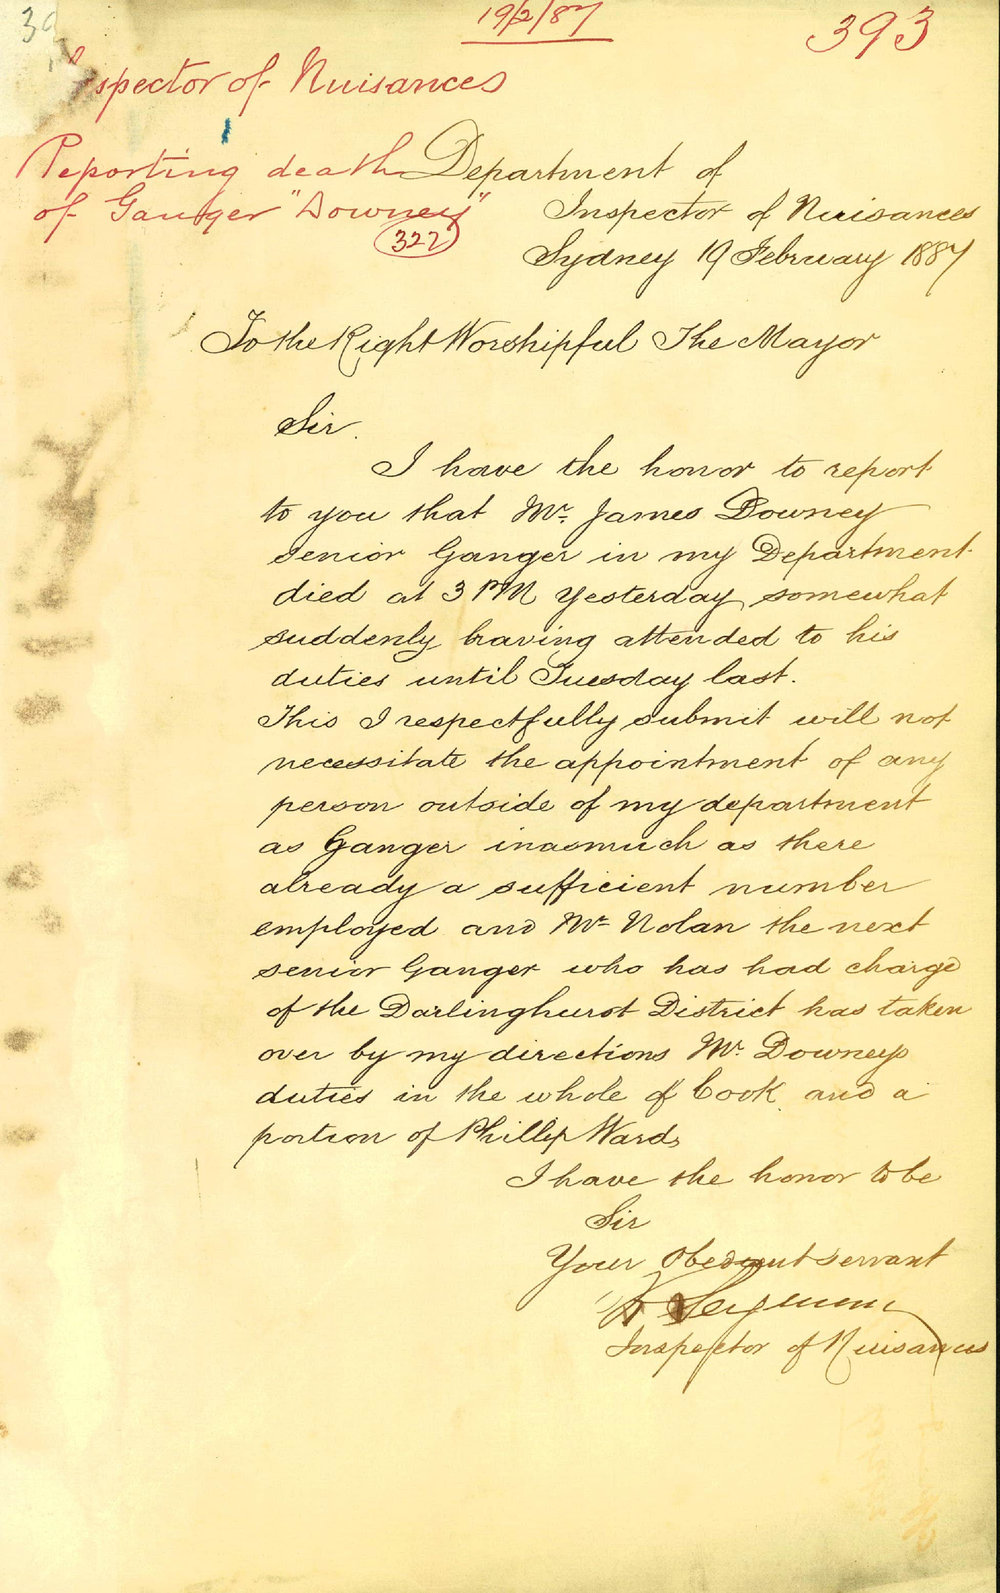 39
19/2/87
393
Inspector of Nuisances
Reporting death
of Ganger "Downey"
322
Department of
Inspector of Nuisances
Sydney 19 February 1887
To the Right Worshipful The Mayor
Sir.
I have the honor to report
to you that Mr. James Downey
senior Ganger in my Department
died at 3 PM Yesterday somewhat
suddenly having attended to his
duties until Tuesday last.
This I respectfully submit will not
necessitate the appointment of any
person outside of my department
as Ganger inasmuch as there
already a sufficient number
employed and Mr Nolan the next
senior Ganger who has had charge
of the Darlinghurst District has taken
over by my directions Mr. Downeys
duties in the whole of Cook and a
portion of Phillip Wards
I have the honor to be
Sir
Your Obedient servant
Seymour
Inspector of Nuisances